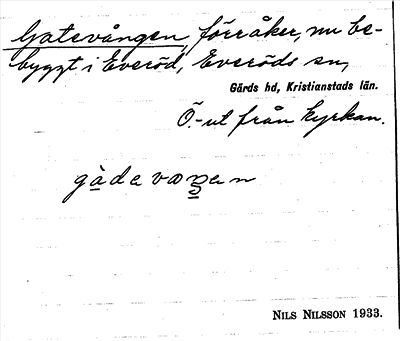 Gatevången, förråker, nu be-
byggt i Everöd, Everöds sn,
Gärds hd, Kristianstads län.
Ö.-ut från kyrkan.
gàdevaŋen
NILS NILSSON 1933.